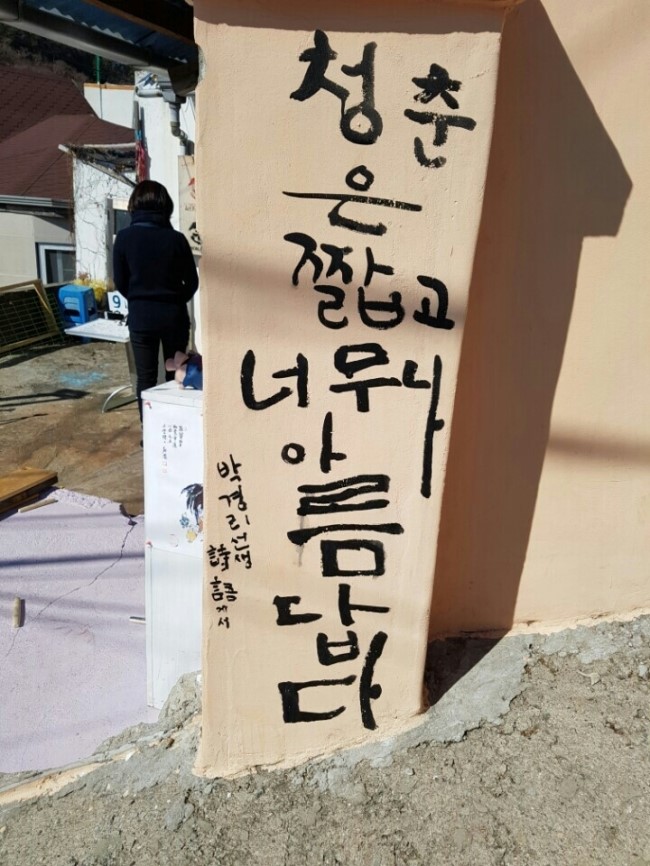 청춘
은
짧고
너무나
아
름
답
다
박경리선생
詩
9